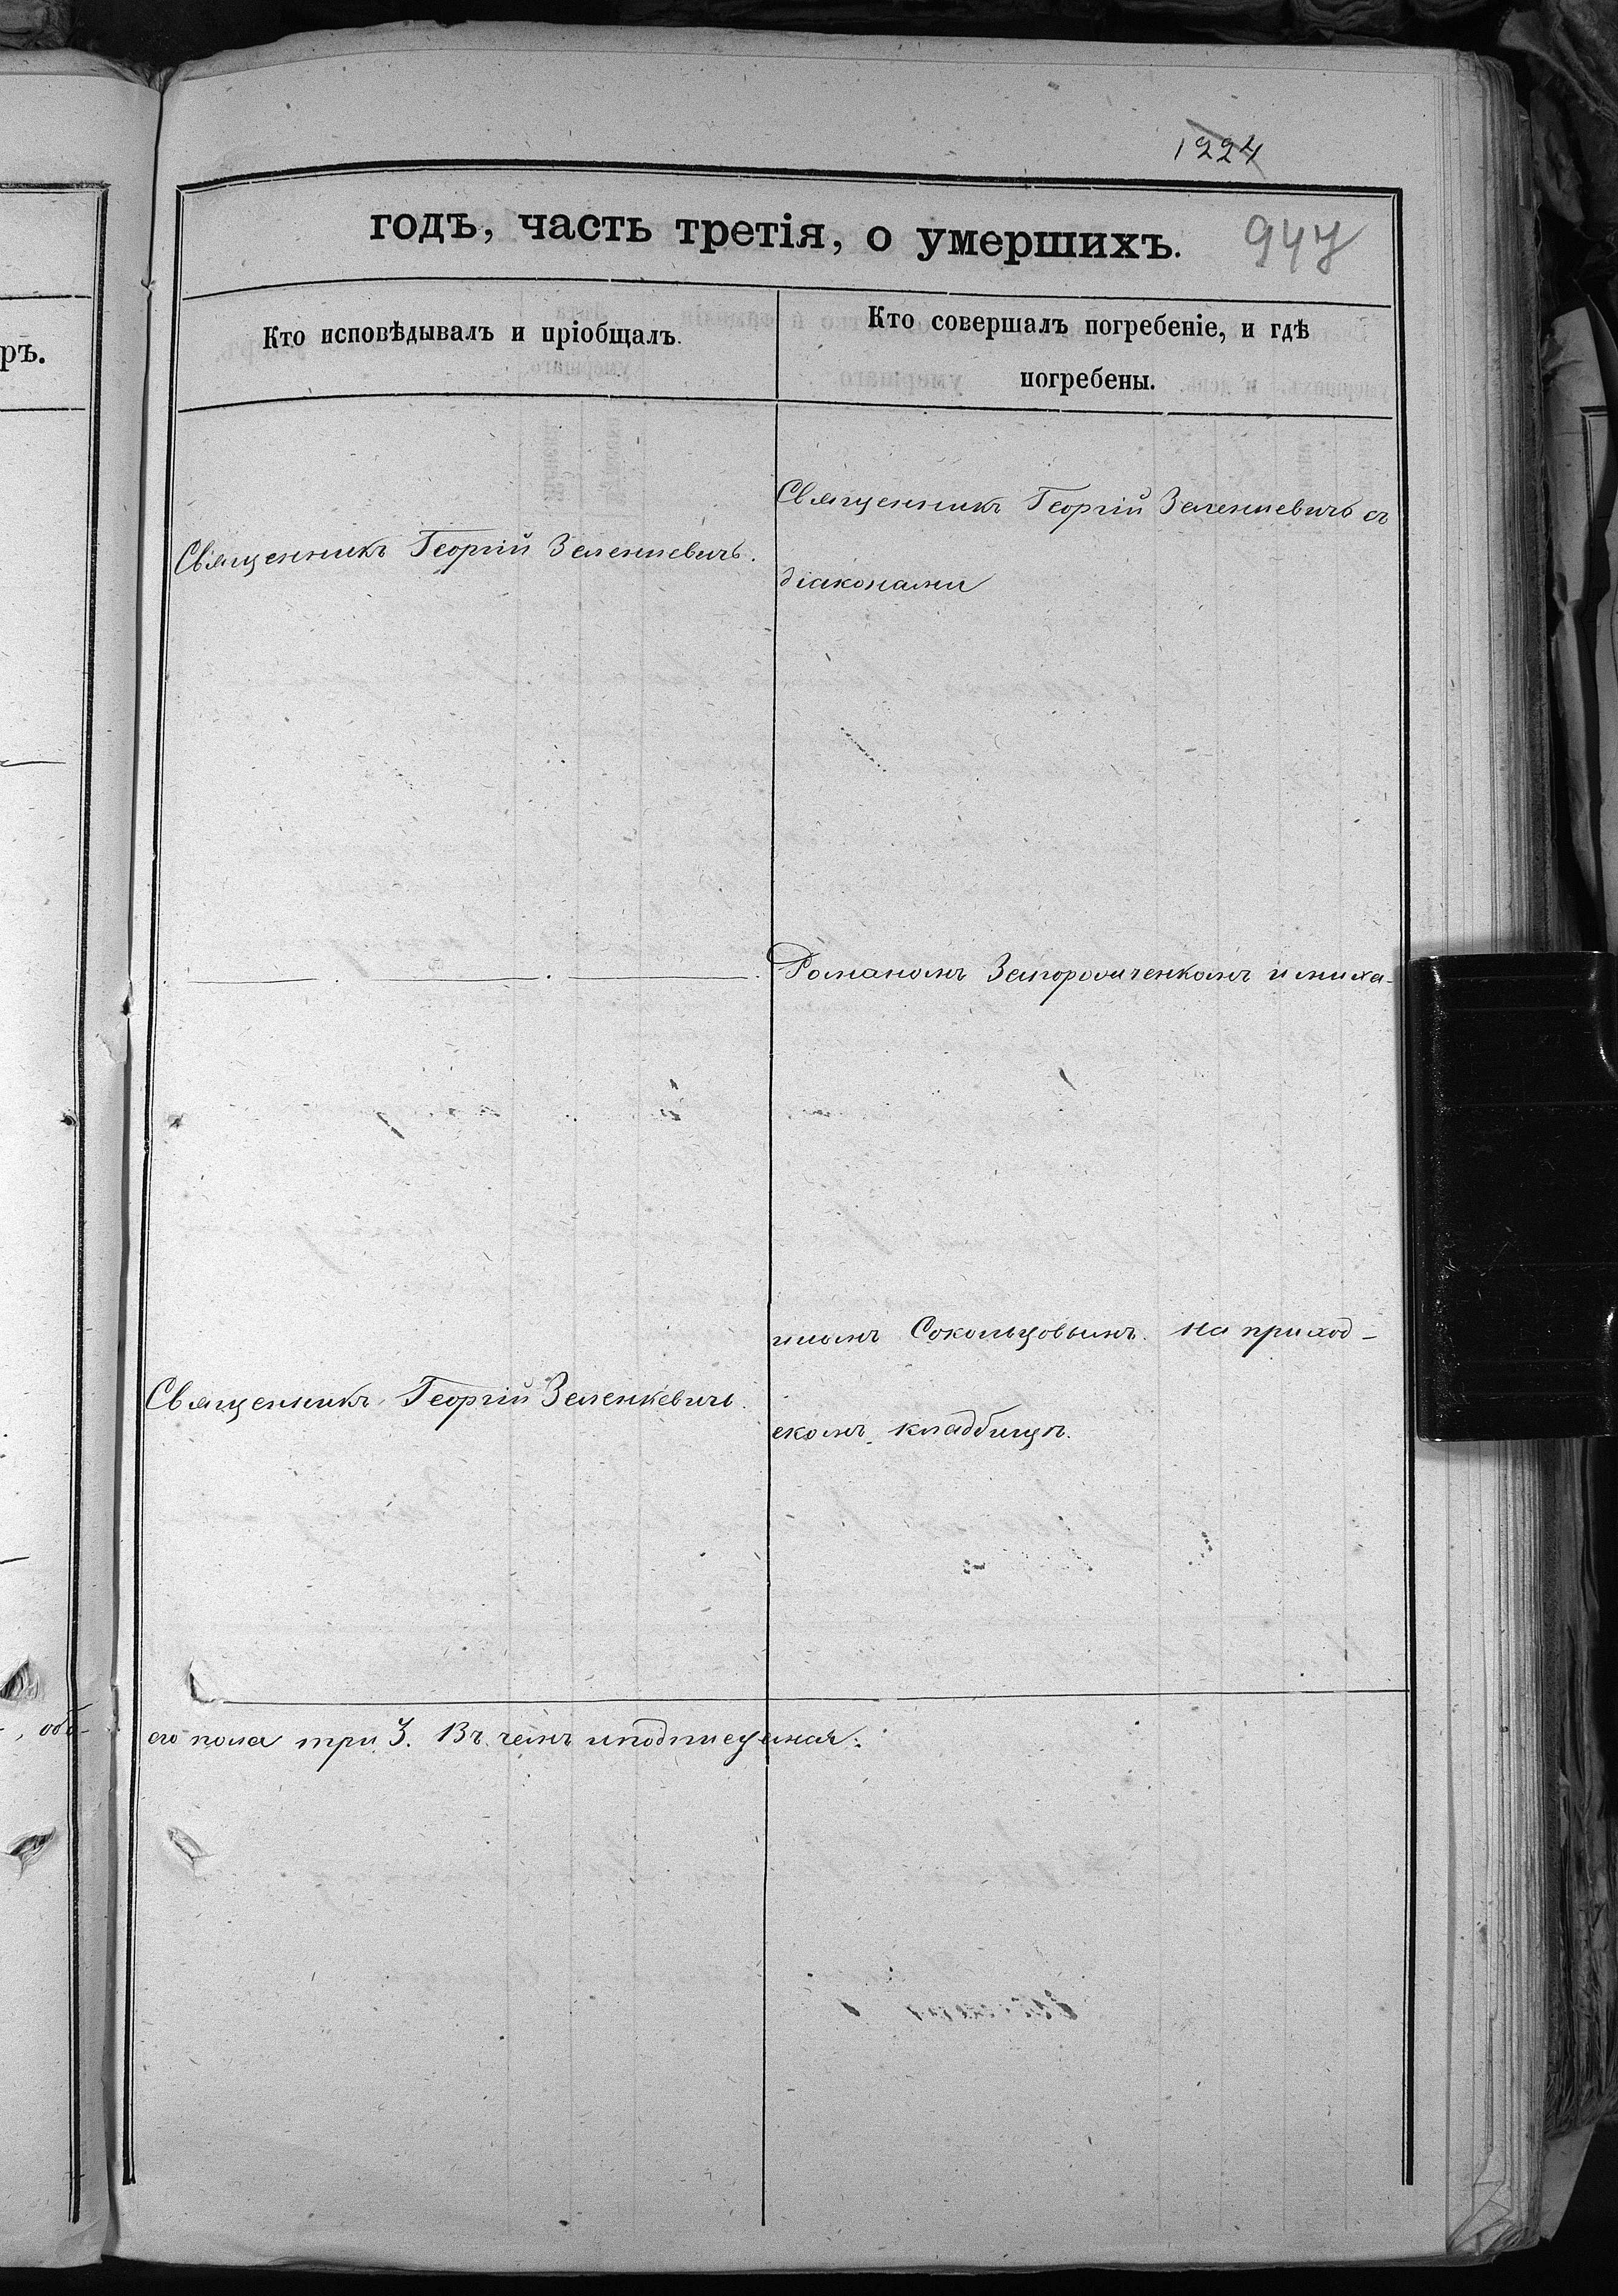 1224
годъ, часть третія, о умершихъ. 947
ръ.
Кто исповѣдывалъ и пріобщалъ.
Кто совершалъ погребеніе, и гдѣ
погребены.
Священникъ Георгій Зеленкевичъ.
Священникъ Георгій Зеленкевичъ съ
діаконами
Романомъ и миха-
иломъ Сокольцовымъ. на приход-
Священникъ Георгій Зеленкевичъ.
скомъ кладбищѣ.
обо-
его пола три 3. Въ чемъ и подписуемся: